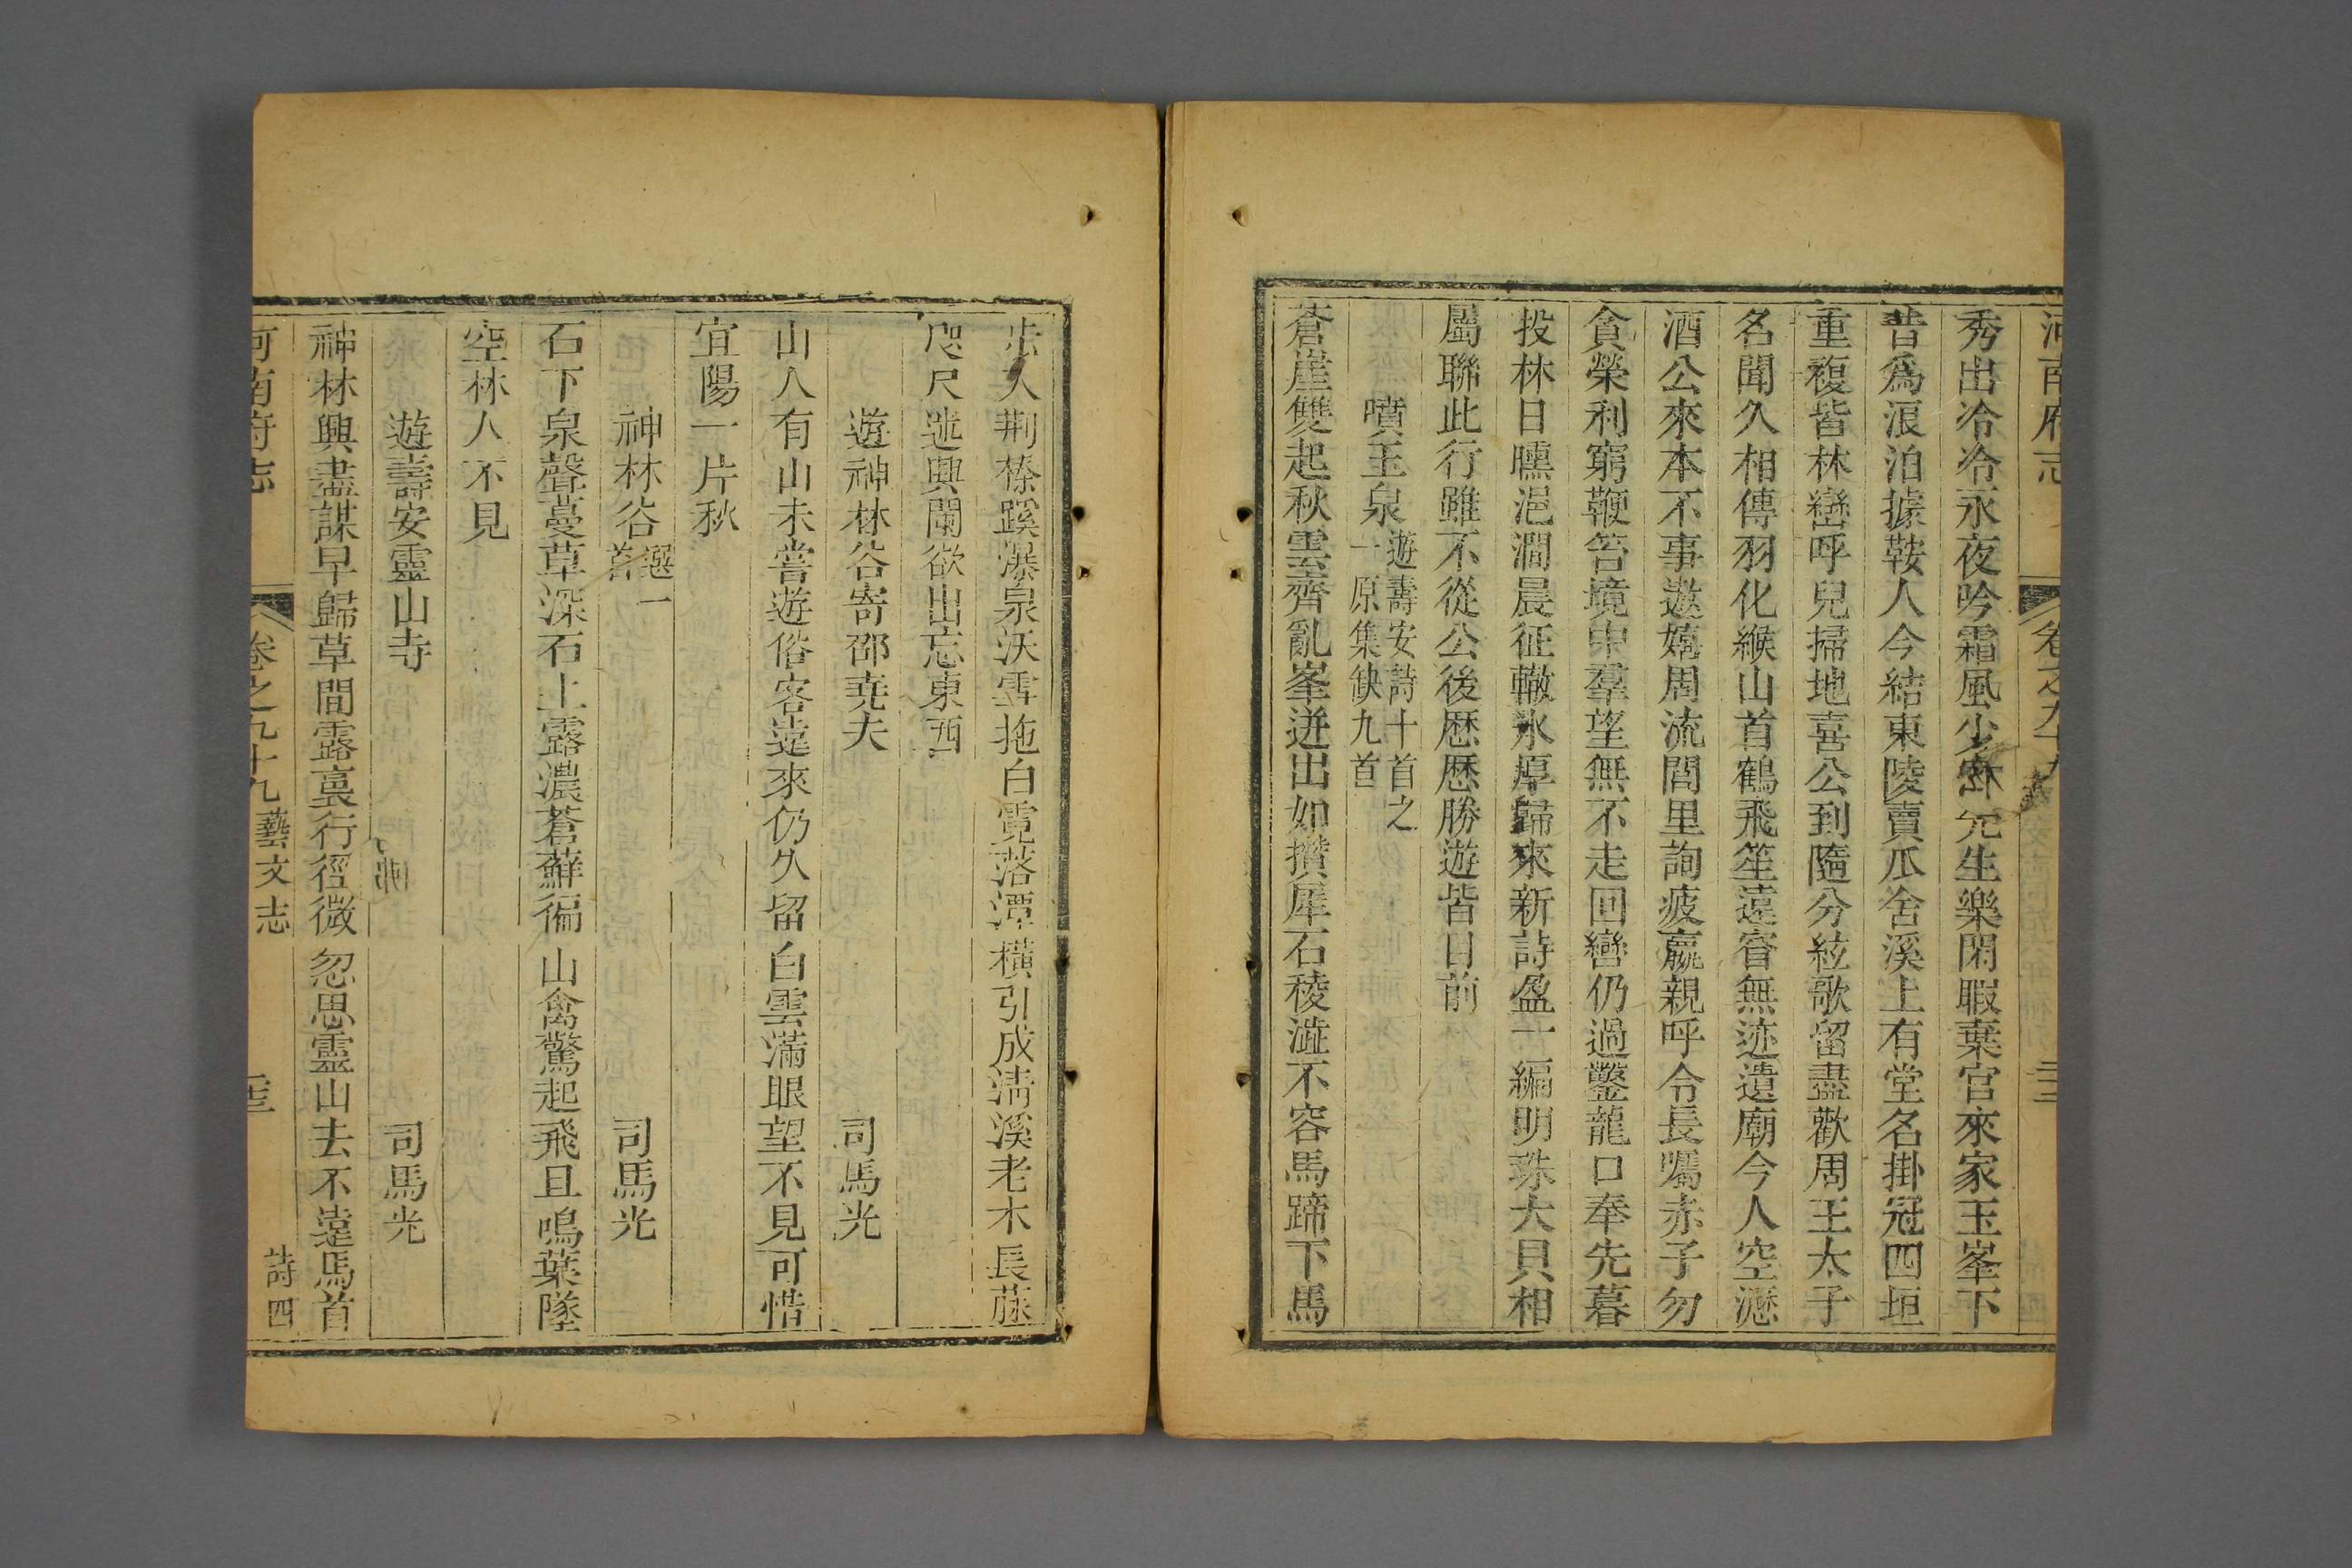 河南府志 卷之九十九
秀出冷冷永夜吟霜風少室先生樂閑暇棄官來家玉峯下
昔爲浪泊據鞍人今結東陵賣瓜舍溪上有堂名掛冠四垣
重複皆林巒呼兒掃地喜公到隨分絃歌留盡歡周王太子
名聞久相傳羽化緱山首鶴飛笙遠杳無迹遺廟今人空瀝
酒公來本不事遨嬉周流閭里詢疲羸親呼令長囑赤子勿
貪榮利窮鞭笞境中羣望無不走回轡仍過鑿龍口奉先暮
投林日曛浥澗晨征轍氷厚歸來新詩盈一編明珠大貝相
屬聯此行雖不從公後歴歴勝遊皆目前
噴玉泉 遊壽安詩十首之一原集缺九首
蒼崖雙起秋雲齊亂峯迸出如攢犀石稜澁不容馬蹄下馬
步入荆榛蹊瀑泉沃雪拖白霓落潭橫引成淸溪老木長藤
咫尺迷興闌欲出忘東西
遊神林谷寄邵堯夫 司馬光
山人有山未嘗遊俗客遠來仍久留白雲滿眼望不見可惜
宜陽一片秋
神林谷 選一首 司馬光
石下泉聲蔓草深石上露濃蒼蘚徧山禽驚起飛且鳴葉墜
空林人不見
遊壽安靈山寺 司馬光
神林興盡謀早歸草間露裛行徑微忽思靈山去不遠馬首
河南府志 卷之九十九 藝文志 詩四